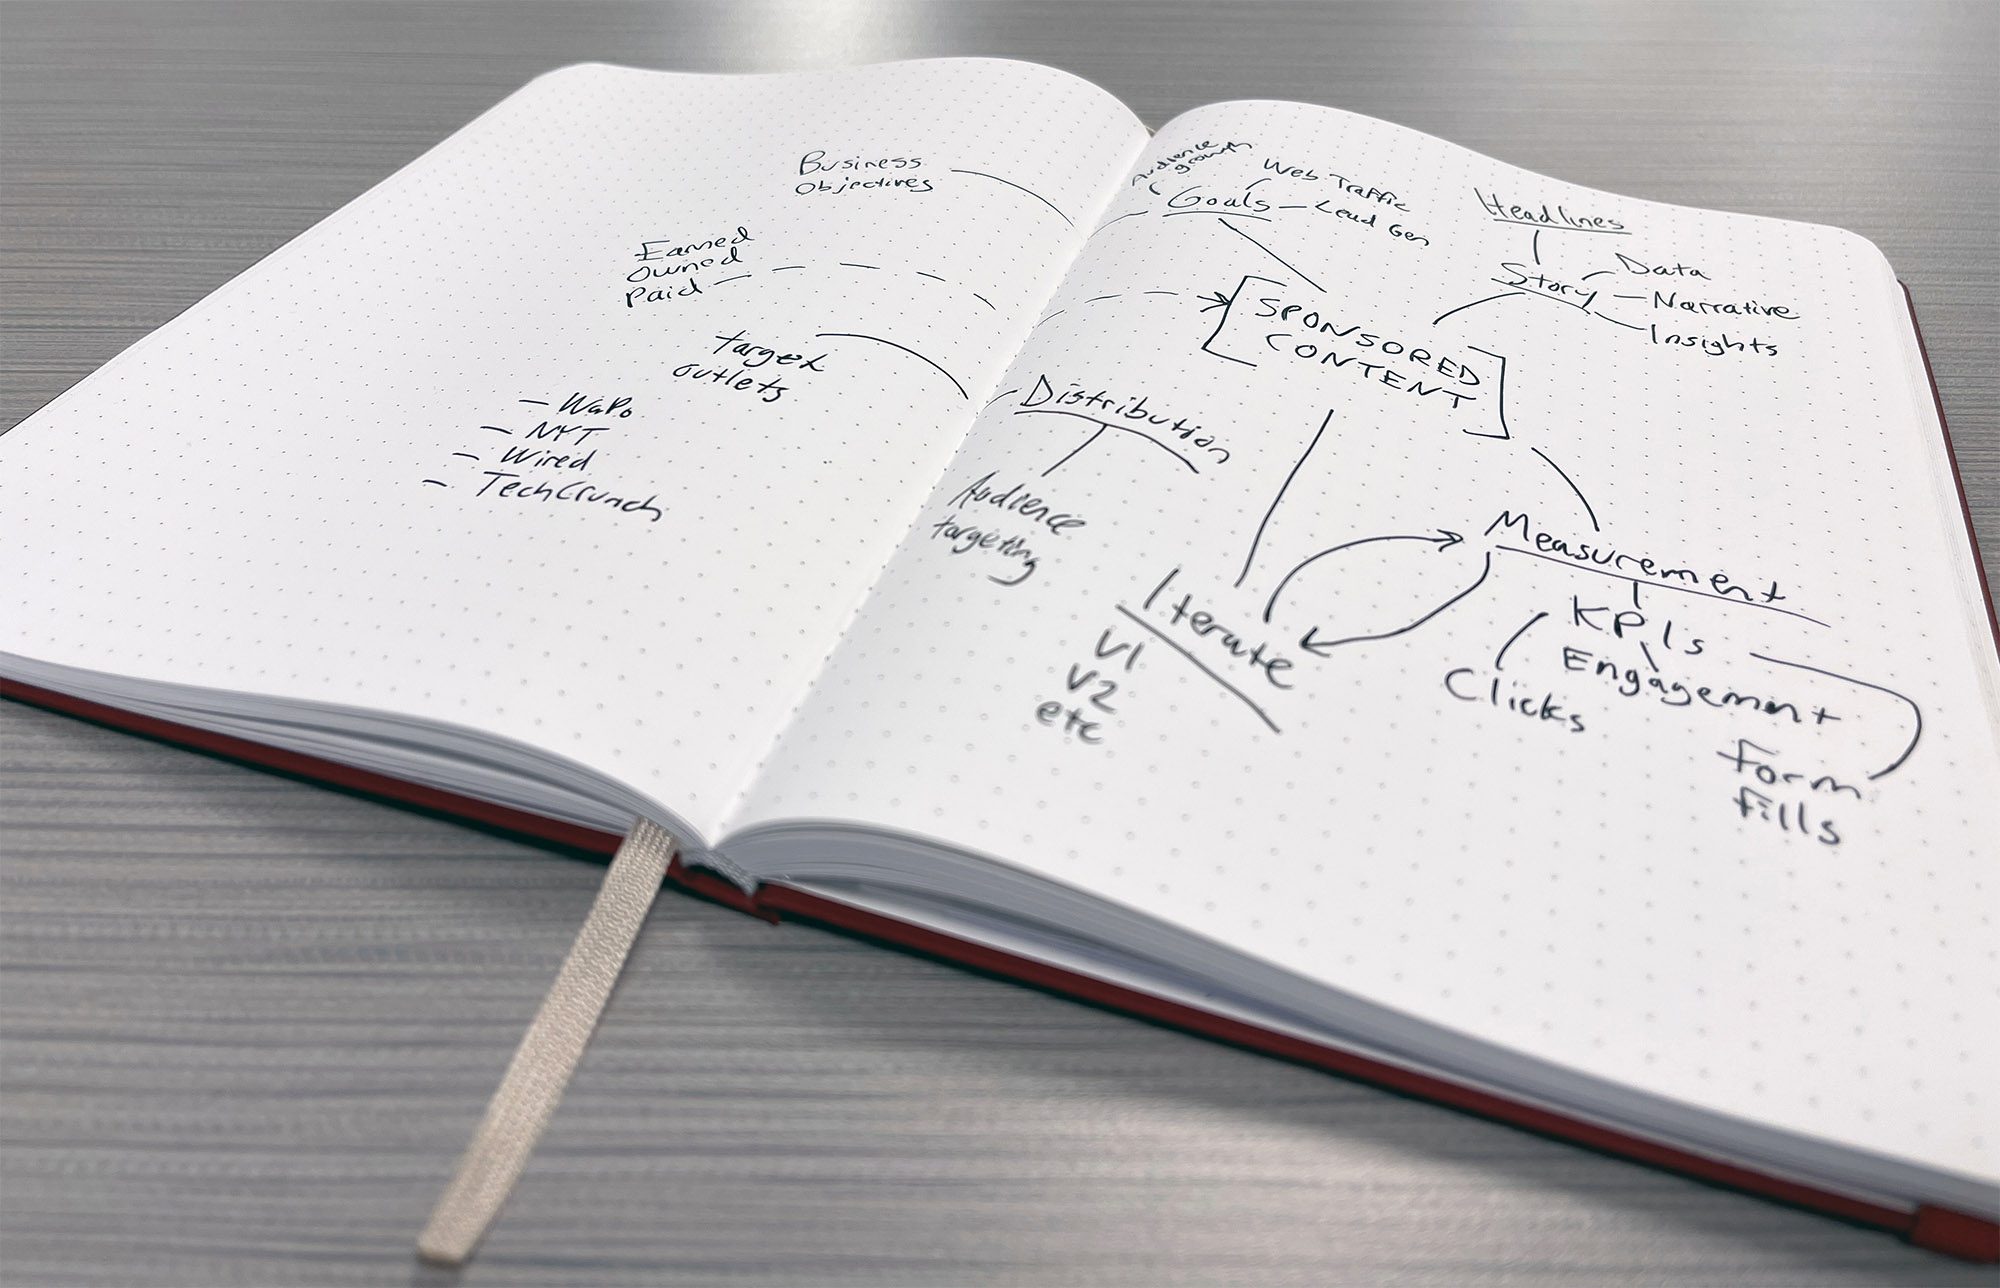 Business
Objectives
Earned
Owned
Paid
target
outlets
- WaPo
- NYT
- Wired
- TechCrunch
Audience
growth
Web Traffic
Goals - Lead Gen
Headlines
Story
Data
- Narrative
- Insights
[SPONSORED
CONTENT]
Distribution
Audience
targeting
Iterate
V1
V2
etc
Measurement
KPIs
Clicks
Engagement
form
fills